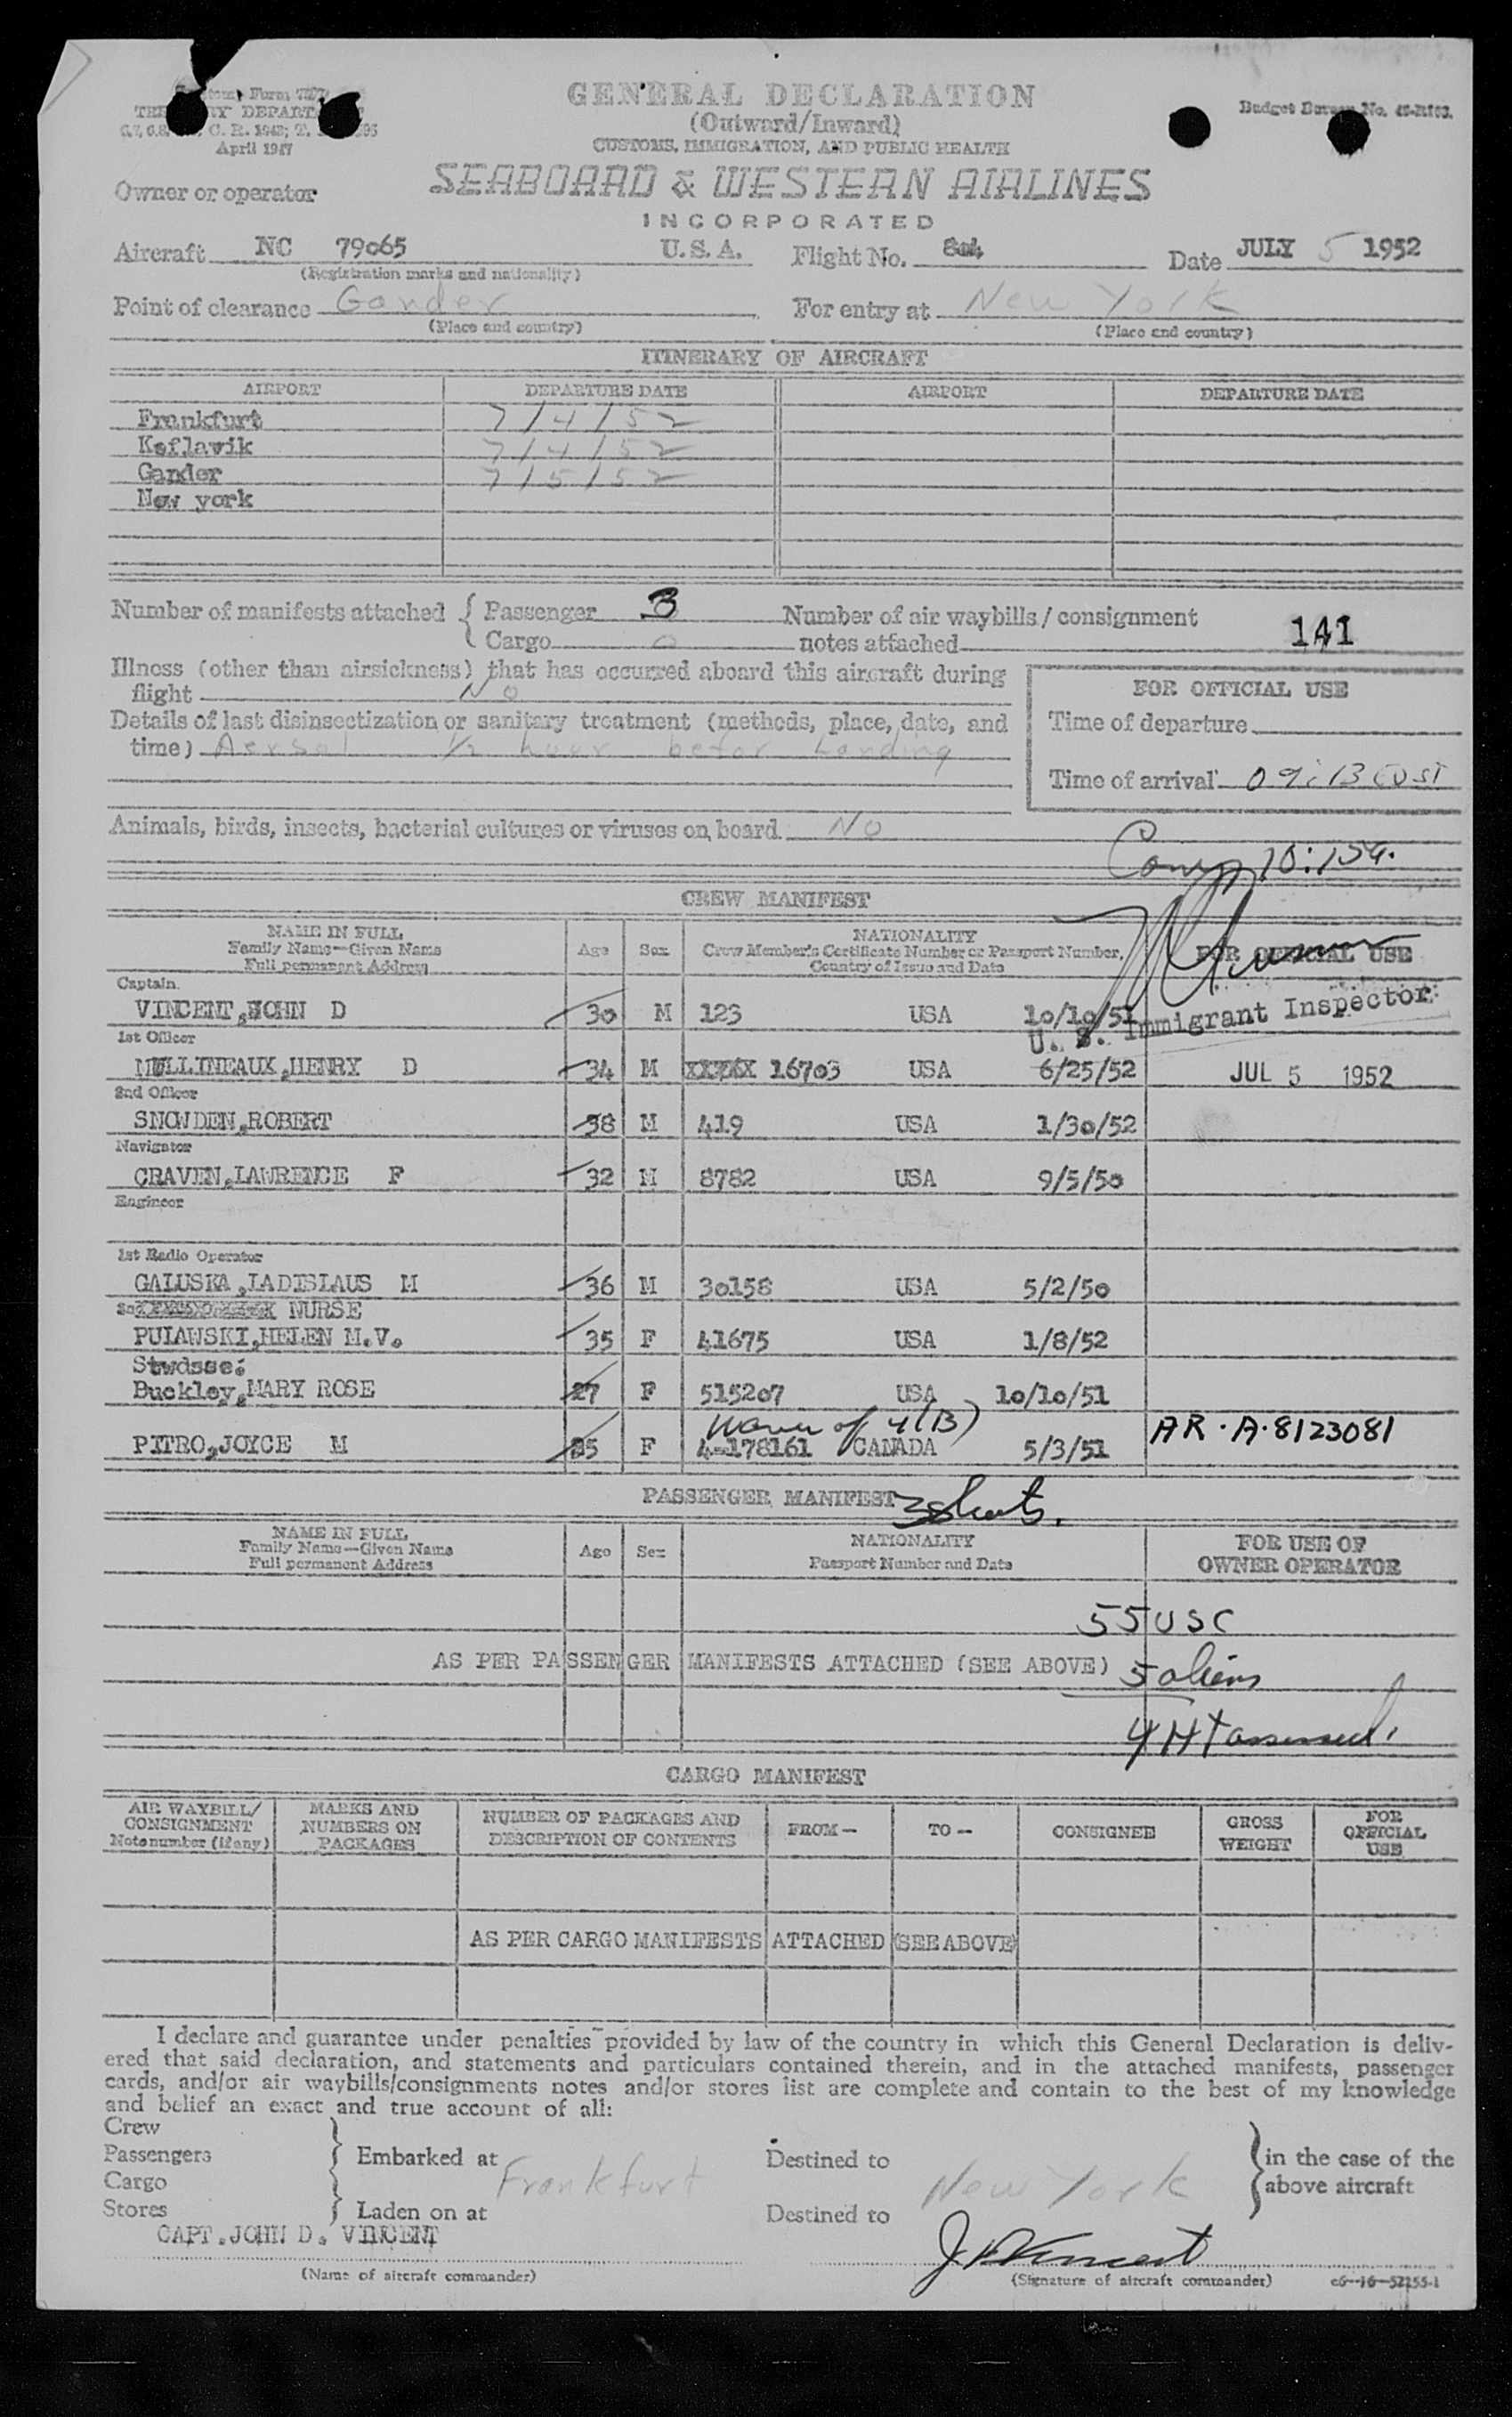 GENERAL DECLARATION
(Outward/Inward)
CUSTOMS, IMMIGRATION, AND PUBLIC HEALTH
April 1947
Owner or operator
SEABOARD & WESTERN AIRLINES
INCORPORATED
Aircraft NC 79065 U.S.A. Flight No. 804 Date JULY 5 1952
(Registration marks and nationality)
Point of clearance Gander For entry at New York
(Place and country) (Place and country)
ITINERARY OF AIRCRAFT
AIRPORT DEPARTURE DATE AIRPORT DEPARTURE DATE
Frankfurt 7/4/52
Keflavik 7/4/52
Gander 7/5/52
New york
Number of manifests attached { Passenger 3 Number of air waybills/consignment
Cargo 0 notes attached 141
Illness (other than airsickness) that has occurred aboard this aircraft during
flight No
FOR OFFICIAL USE
Details of last disinsectization or sanitary treatment (methods, place, date, and
time) Aersol 1/2 hour befor Landing
Time of departure
Time of arrival 09:13
Animals, birds, insects, bacterial cultures or viruses on board. No
CREW MANIFEST
NAME IN FULL
Family Name—Given Name
Full permanent Address
Age Sex
NATIONALITY
Crew Member's Certificate Number or Passport Number,
Country of Issue and Date
FOR OFFICIAL USE
Captain.
VINCENT,JOHN D 30 M 123 USA 10/10/51
U. S. Immigrant Inspector
1st Officer
MULLINEAUX,HENRY D 34 M 16703 USA 6/25/52 JUL 5 1952
2nd Officer
SNOWDEN,ROBERT 38 M 419 USA 1/30/52
Navigator
CRAVEN,LAWRENCE F 32 M 8782 USA 9/5/50
Engineer
1st Radio Operator
GALUSKA,LADISLAUS M 36 M 30158 USA 5/2/50
NURSE
PULAWSKI,HELEN M.V. 35 F 41675 USA 1/8/52
Stwdsse:
Buckley,MARY ROSE 27 F 515207 USA 10/10/51
PITRO,JOYCE M 25 F 4-178161 CANADA 5/3/51 AR·A·8123081
PASSENGER MANIFEST 3 sheets.
NAME IN FULL
Family Name—Given Name
Full permanent Address
Age Sex
NATIONALITY
Passport Number and Date
FOR USE OF
OWNER OPERATOR
55 USC
AS PER PASSENGER MANIFESTS ATTACHED (SEE ABOVE) 5 aliens
4 HT assessed.
CARGO MANIFEST
AIR WAYBILL/
CONSIGNMENT
Note number (if any)
MARKS AND
NUMBERS ON
PACKAGES
NUMBER OF PACKAGES AND
DESCRIPTION OF CONTENTS
FROM— TO— CONSIGNEE
GROSS
WEIGHT
FOR
OFFICIAL
USE
AS PER CARGO MANIFESTS ATTACHED (SEE ABOVE)
I declare and guarantee under penalties provided by law of the country in which this General Declaration is deliv-
ered that said declaration, and statements and particulars contained therein, and in the attached manifests, passenger
cards, and/or air waybills/consignments notes and/or stores list are complete and contain to the best of my knowledge
and belief an exact and true account of all:
Crew
Passengers Embarked at Frankfurt Destined to New York in the case of the
Cargo above aircraft
Stores Laden on at Destined to
CAPT.JOHN D. VINCENT J D Vincent
(Name of aircraft commander) (Signature of aircraft commander)